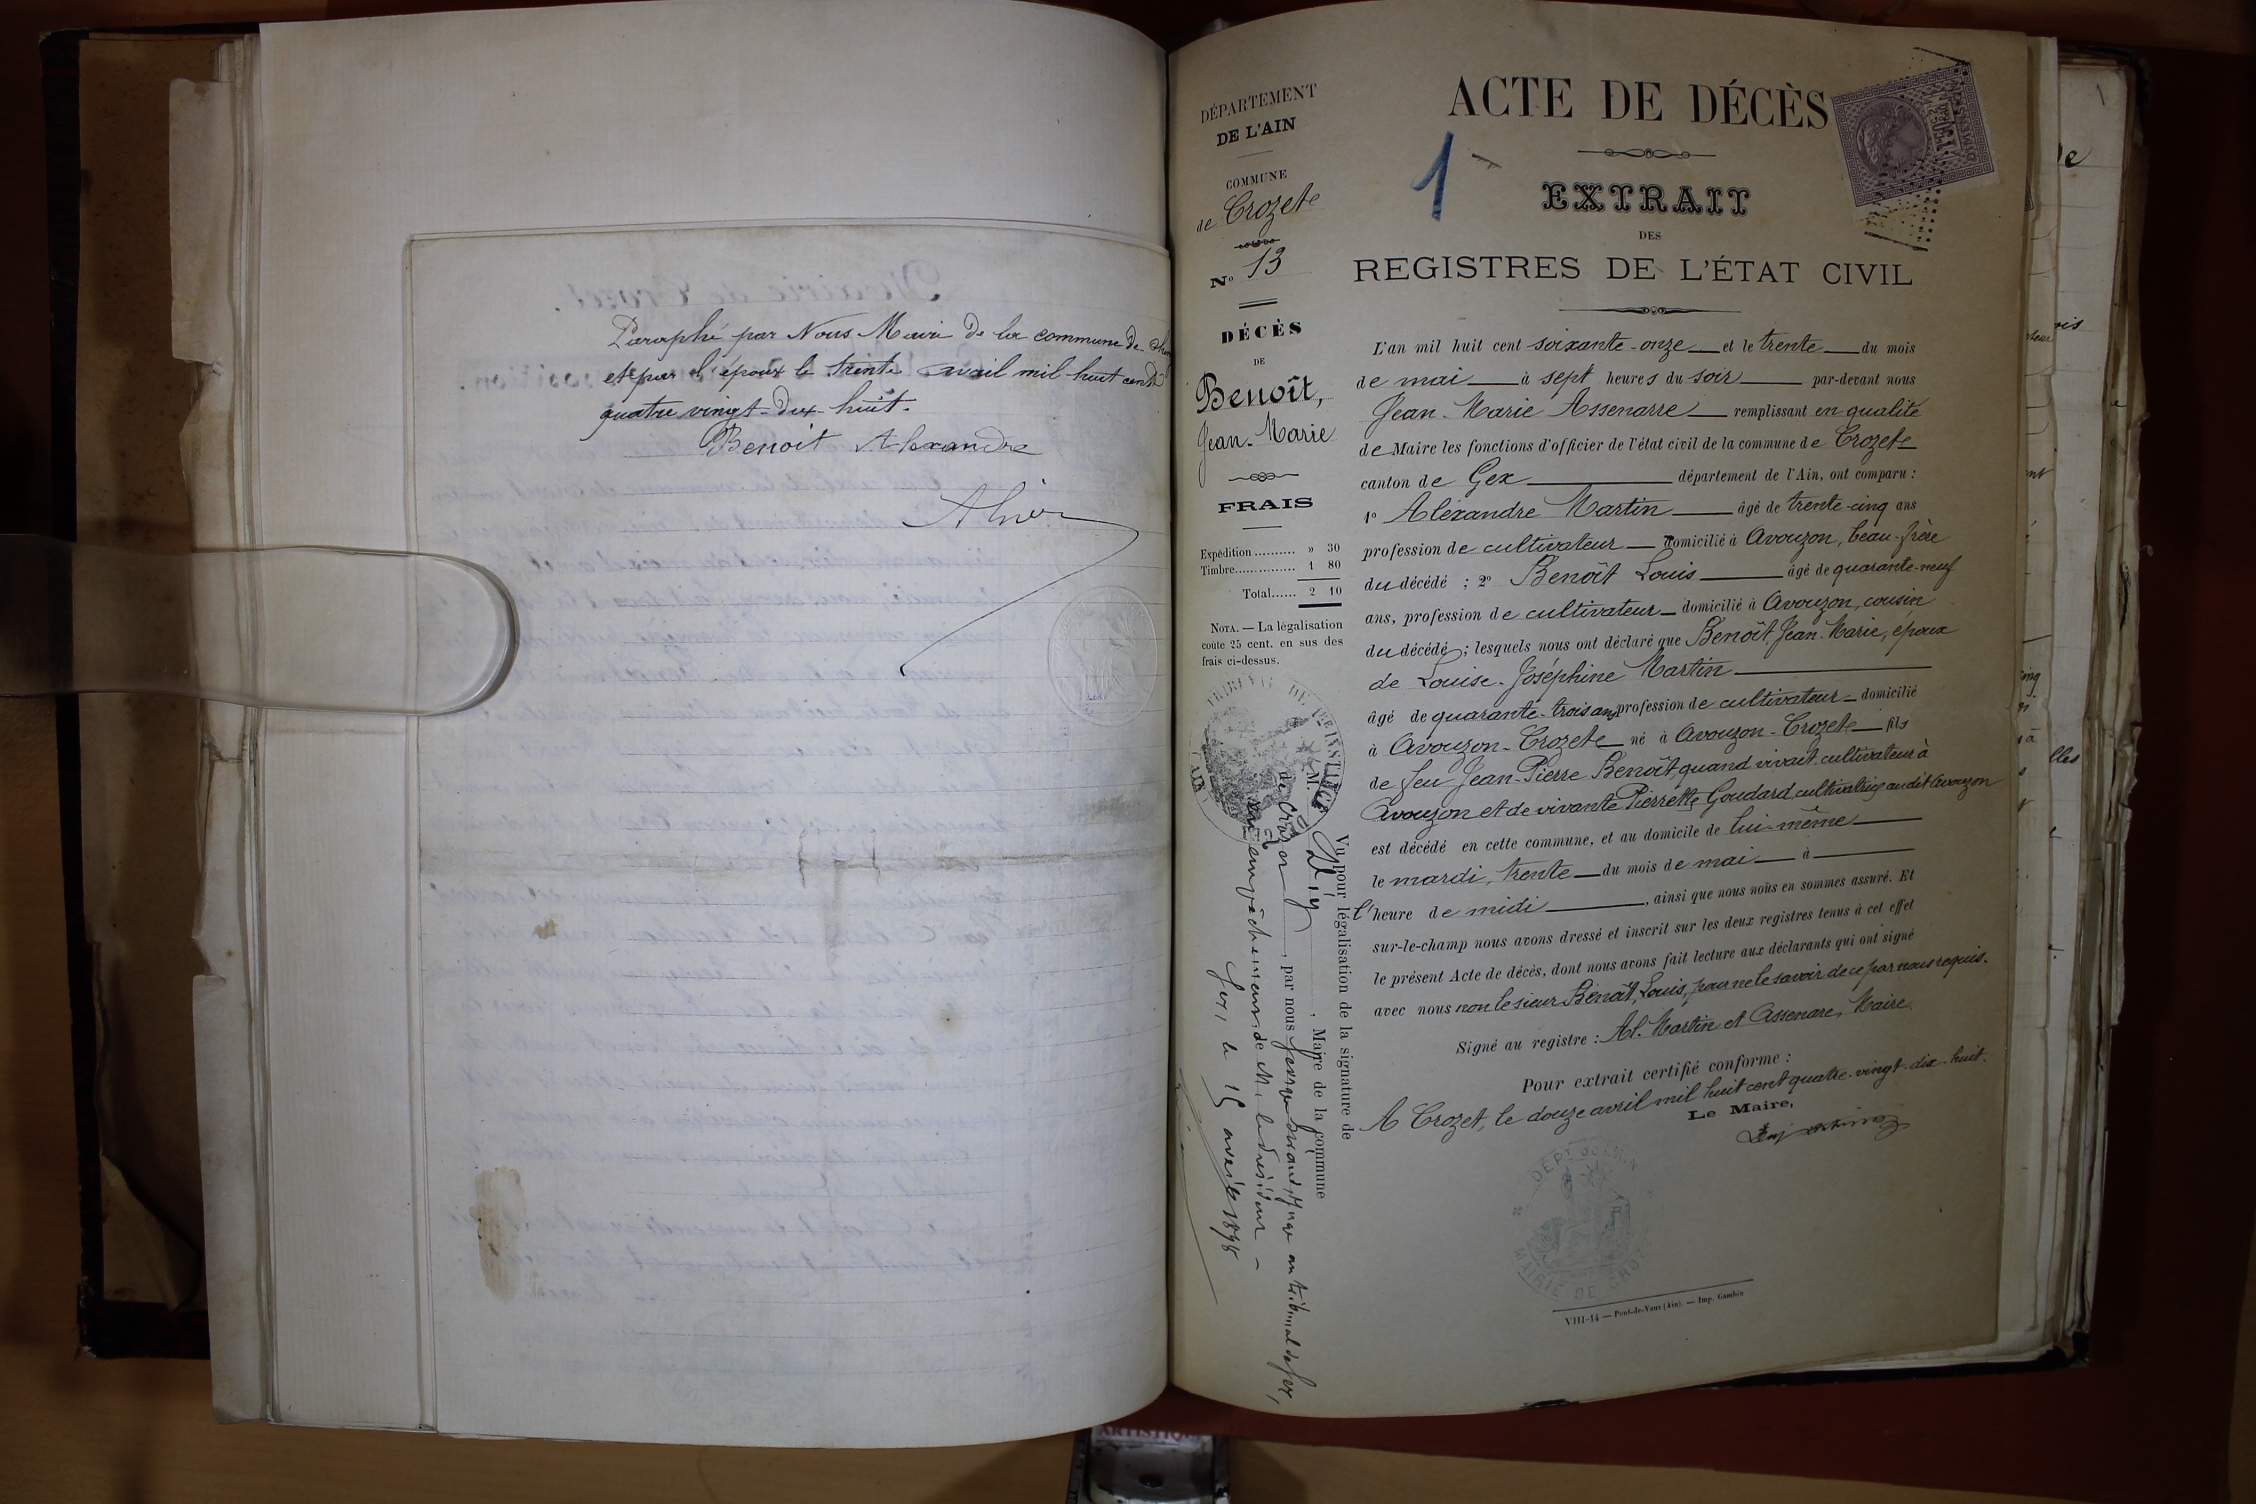 Paraphé par Nous Maire de la commune de
et par l'époux le trente avril mil huit cent
quatre vingt-dix-huit.
Benoit Alexandre
DÉPARTEMENT
DE L'AIN
COMMUNE
de Crozete
N° 13
DÉCÈS
DE
Benoît,
Jean-Marie
FRAIS
Expédition .......... » 30
Timbre............... 1 80
Total...... 2 10
NOTA. — La légalisation
coûte 25 cent. en sus des
frais ci-dessus.
Vu pour légalisation de la signature de
M. , Maire de la commune
de Crozet , par nous juge au tribunal de Gex,
empêchement de M. le Président –
Gex, le 15 avril 1898
ACTE DE DÉCÈS
1
EXTRAIT
DES
REGISTRES DE L'ÉTAT CIVIL
L'an mil huit cent soixante-onze et le trente du mois
de mai à sept heures du soir par-devant nous
Jean-Marie Assenarre remplissant en qualité
de Maire les fonctions d'officier de l'état civil de la commune de Crozete
canton de Gex département de l'Ain, ont comparu :
1° Aléxandre Martin âgé de trente-cinq ans
profession de cultivateur domicilié à Avouzon, beau-frère
du décédé ; 2° Benoît Louis âgé de quarante-neuf
ans, profession de cultivateur domicilié à Avouzon, cousin
du décédé ; lesquels nous ont déclaré que Benoît, Jean-Marie, époux
de Louise-Joséphine Martin
âgé de quarante-trois ans profession de cultivateur domicilié
à Avouzon-Crozete né à Avouzon-Crozete fils
de feu Jean-Pierre Benoît, quand vivait cultivateur à
Avouzon et de vivante Pierrette Goudard cultivatrice audit Avouzon
est décédé en cette commune, et au domicile de lui-même
le mardi, trente du mois de mai à
l'heure de midi , ainsi que nous nous en sommes assuré. Et
sur-le-champ nous avons dressé et inscrit sur les deux registres tenus à cet effet
le présent Acte de décès, dont nous avons fait lecture aux déclarants qui ont signé
avec nous non le sieur Benoît, Louis, pour ne le savoir de ce par nous requis.
Signé au registre : Al. Martin et Assenare, Maire.
Pour extrait certifié conforme :
A Crozet, le douze avril mil huit cent quatre-vingt-dix-huit.
Le Maire,
VIII-14 — Pont-de-Vaux (Ain). — Imp. Gambin